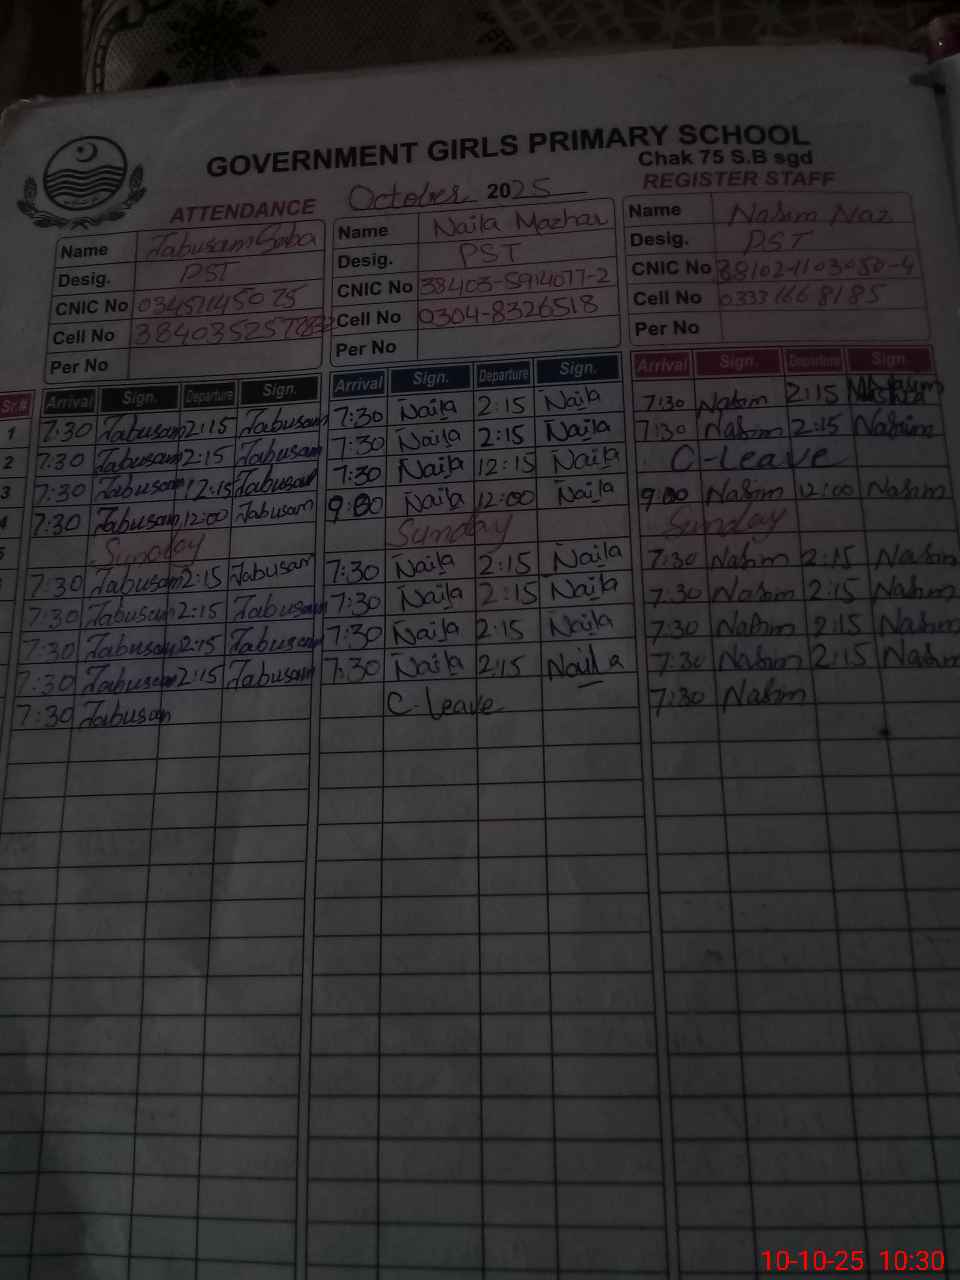 GOVERNMENT GIRLS PRIMARY SCHOOL
Chak 75 S.B sgd
ATTENDANCE October 2025 REGISTER STAFF
Name Tabusam Saba Name Naila Mazhar Name Nasim Naz
Desig. PST Desig. PST Desig. PST
CNIC No 03457145075 CNIC No 38403-5914077-2 CNIC No
Cell No Cell No 0304-8326518 Cell No 0333 166 8185
Per No Per No Per No
Sr.# Arrival Sign. Departure Sign. Arrival Sign. Departure Sign. Arrival Sign. Departure Sign.
1 7:30 Tabusam 2:15 Tabusam 7:30 Naila 2:15 Naila 7:30 Nasim 2:15
2 7:30 Tabusam 2:15 Tabusam 7:30 Naila 2:15 Naila 7:30 Nasim 2:15 Nasim
3 7:30 Tabusam 12:15 Tabusam 7:30 Naila 12:15 Naila C-Leave
4 7:30 Tabusam 12:00 Tabusam 9:00 Naila 12:00 Naila 9:00 Nasim 12:00 Nasim
5 Sunday Sunday Sunday
7:30 Tabusam 2:15 Tabusam 7:30 Naila 2:15 Naila 7:30 Nasim 2:15 Nasim
7:30 Tabusam 2:15 Tabusam 7:30 Naila 2:15 Naila 7:30 Nasim 2:15 Nasim
7:30 Tabusam 2:15 Tabusam 7:30 Naila 2:15 Naila 7:30 Nasim 2:15 Nasim
7:30 Tabusam 2:15 Tabusam 7:30 Naila 2:15 Naila 7:30 Nasim 2:15 Nasim
7:30 Tabusam C-leave 7:30 Nasim
10-10-25 10:30